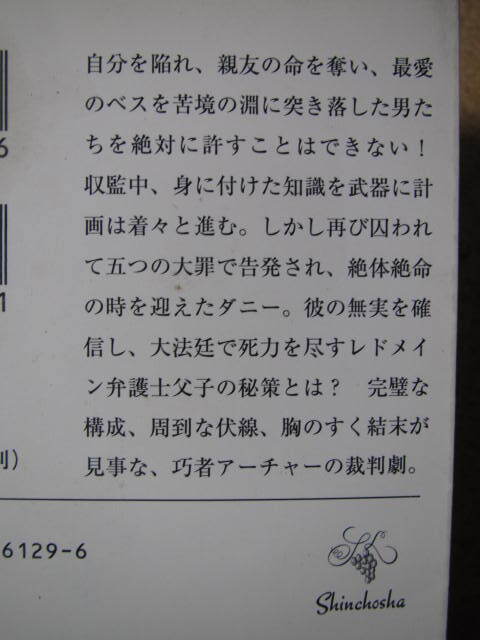 自分を陥れ、親友の命を奪い、最愛
のベスを苦境の淵に突き落した男た
ちを絶対に許すことはできない!
収監中、身に付けた知識を武器に計
画は着々と進む。しかし再び囚われ
て五つの大罪で告発され、絶体絶命
の時を迎えたダニー。彼の無実を確
信し、大法廷で死力を尽すレドメイ
ン弁護士父子の秘策とは? 完璧な
構成、周到な伏線、胸のすく結末が
見事な、巧者アーチャーの裁判劇。
6
1
別)
6129-6
Shinchosha